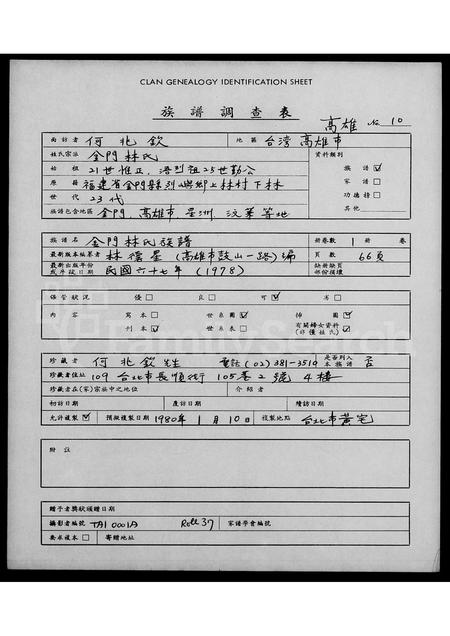 CLAN GENEALOGY IDENTIFICATION SHEET
族譜調查表
高雄 No 10
面訪者 何兆欽 地區 台灣高雄市
姓氏宗派 金門林氏 資料類別
始祖 21世惟正、渡烈祖25世勤公 族譜 ☑
原籍 福建省金門縣列嶼鄉上林村下林 家譜 □
世代 23代 功德榜 □
族譜包含地區 金門、高雄市、星洲、汶萊等地 其他
族譜名 金門林氏族譜 册卷數 1 册 卷
最新版本編纂者 林福星 (高雄市鼓山一路)編 頁數 66頁
最新出版年份或年版日期 民國六十七年 (1978) 缺册缺頁部份損壞
保管狀況 優 □ 良 □ 可 ☑ 劣 □
內容 寫本 □ 世系圖 ☑ 掛圖 ☑
刊本 ☑ 世系表 □ 有關婦女資料(非僅姓氏) ☑
珍藏者 何兆欽先生 電話 (02) 381-3519 是否列入本族譜 否
珍藏者住址 109 台北市長順街 105巷2號 4樓
珍藏者在(家)宗族中之地位 介紹者
初訪日期 覆訪日期 續訪日期
允許複製 ☑ 預擬複製日期 1980年 1月 10日 複製地點 台北市黃宅
附註
贈予者獎狀頒贈日期
攝影者編號 TAI 0001A Roll 37 家譜學會編號
要求複本 □ 寄贈地址
FamilySearch